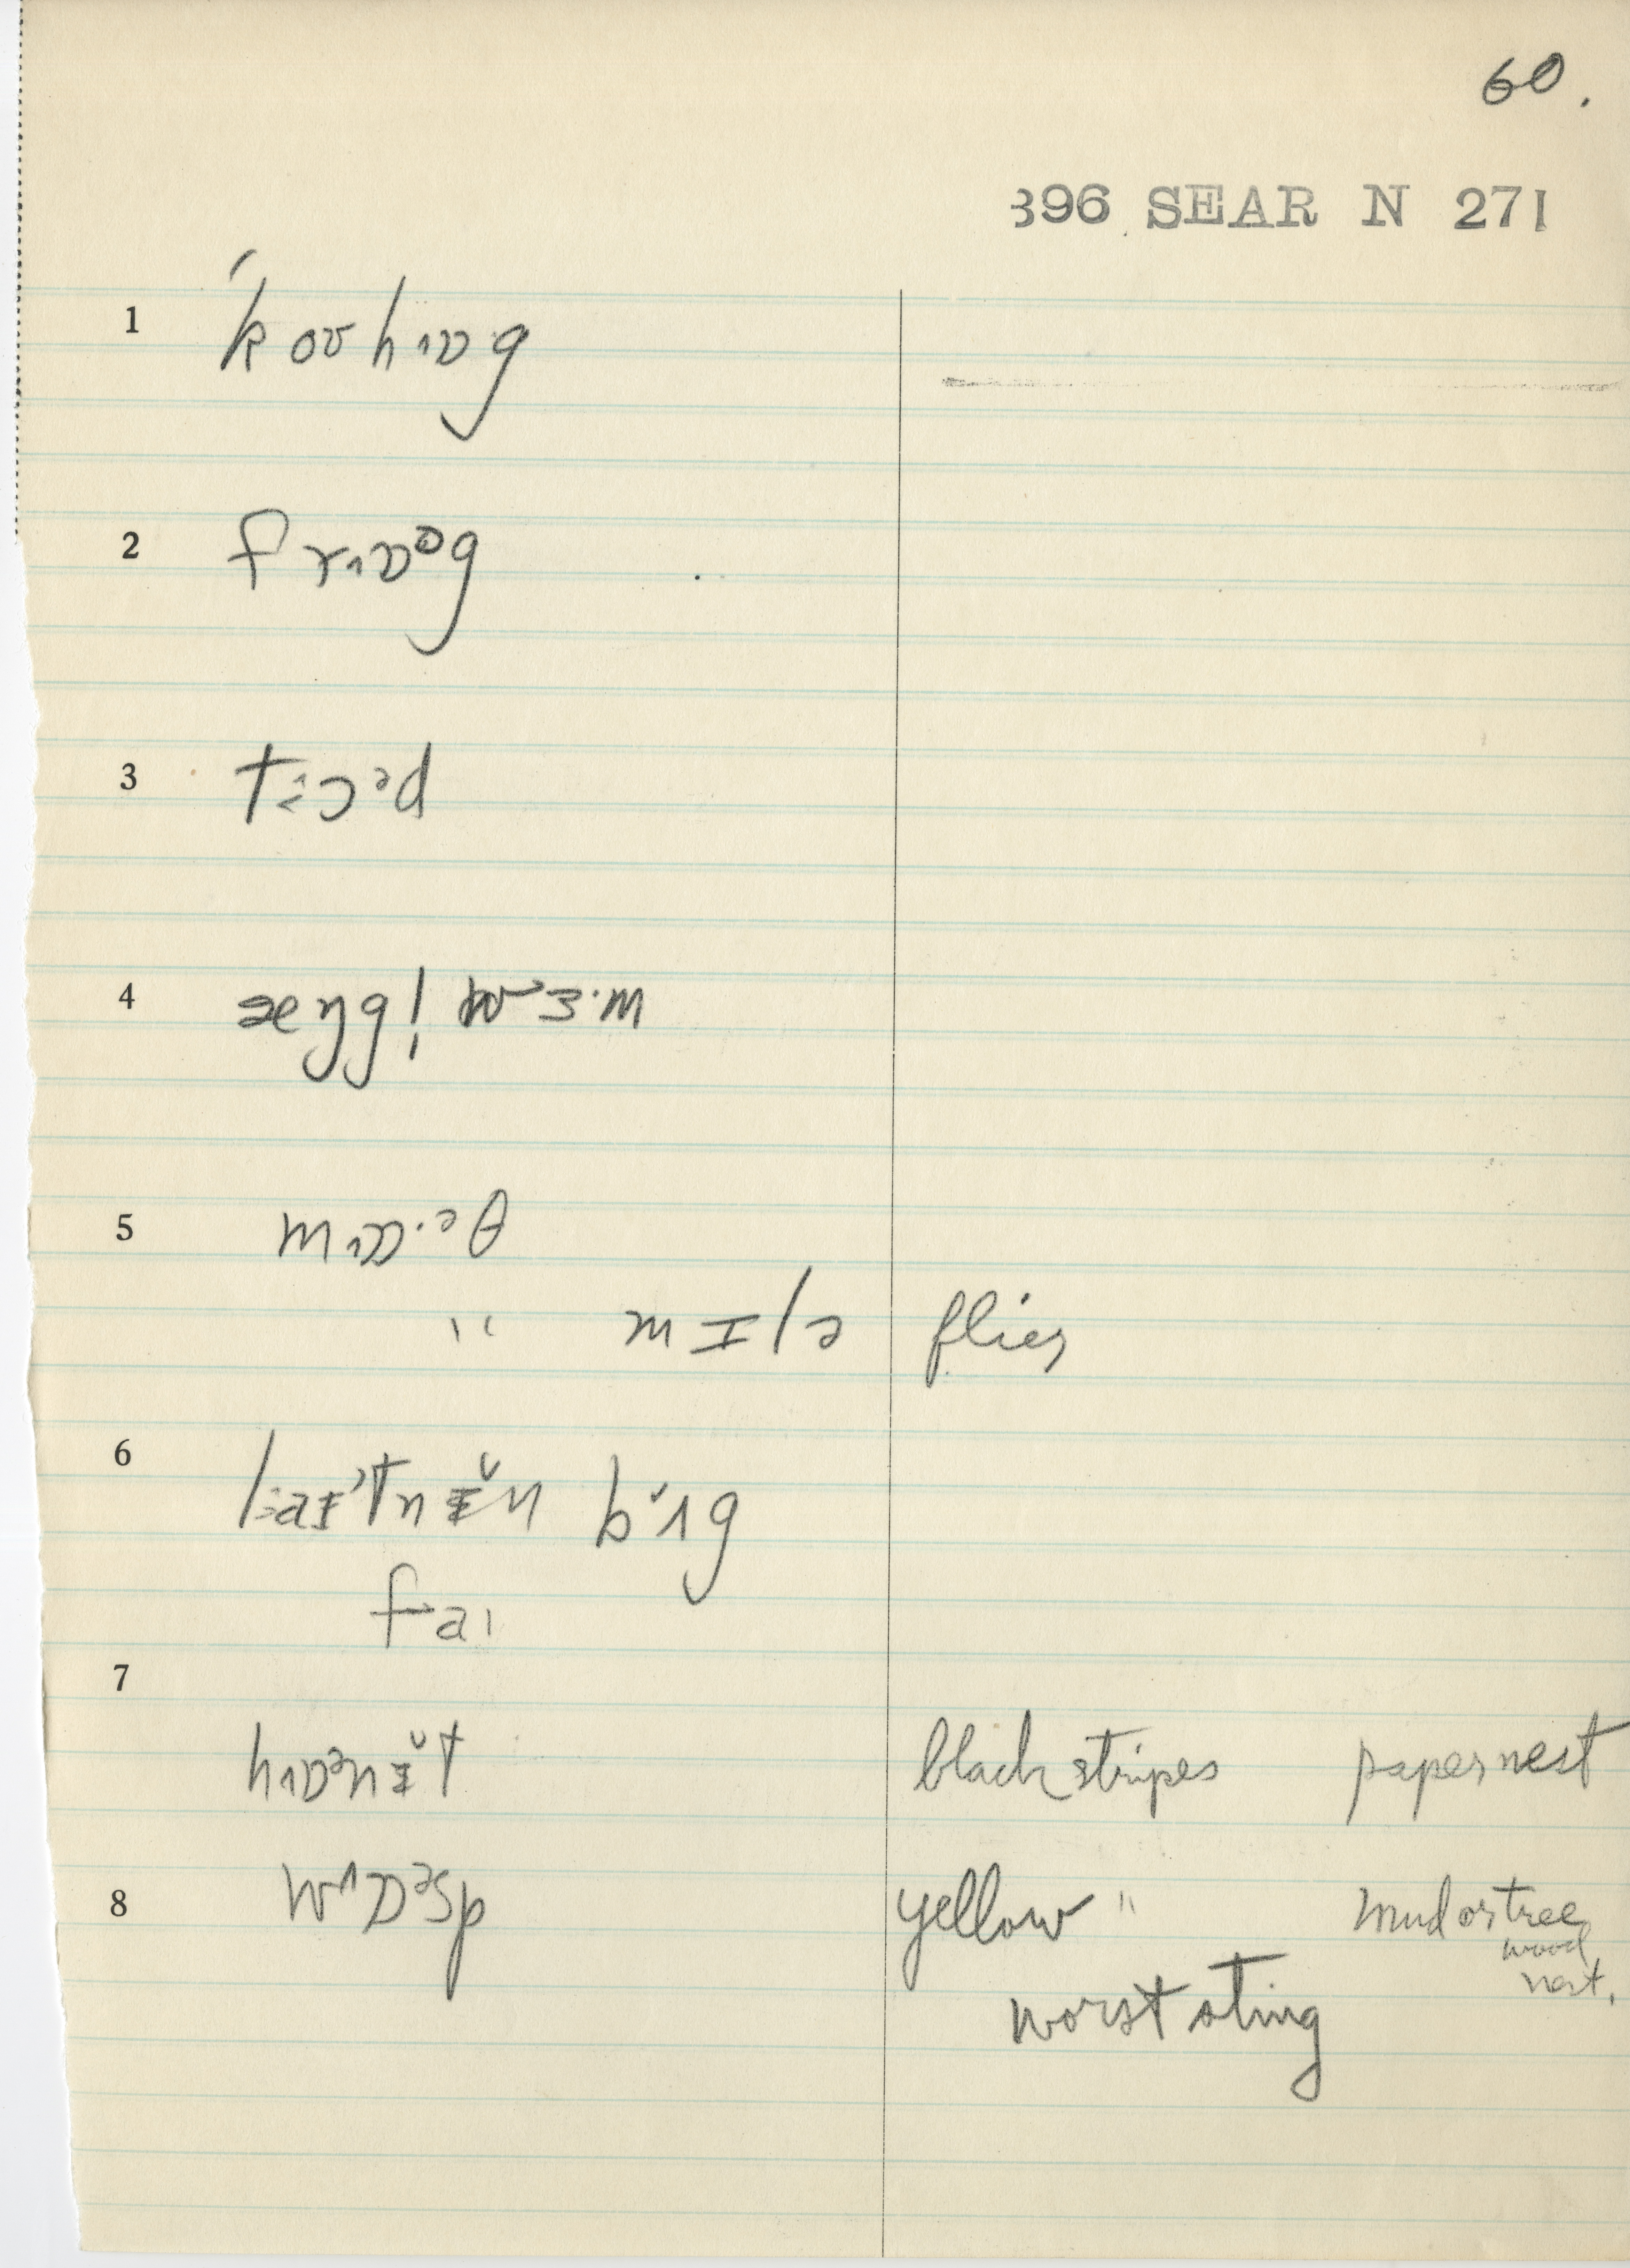 60.
396 SEAR N 271
1 ˊkoʊhɒg
2 frɒᵒg
3 tɔᵊd
4 æŋg! wɜ·m
5 mɒ·ᵊθ
" mɪlə flies
6 laɪˈtnɪ̆n bʌg
faɪ
7
hɒᵊnɪ̆t black stripes paper nest
8 wɒᵊsp yellow " mud or tree
wood
nest.
worst sting